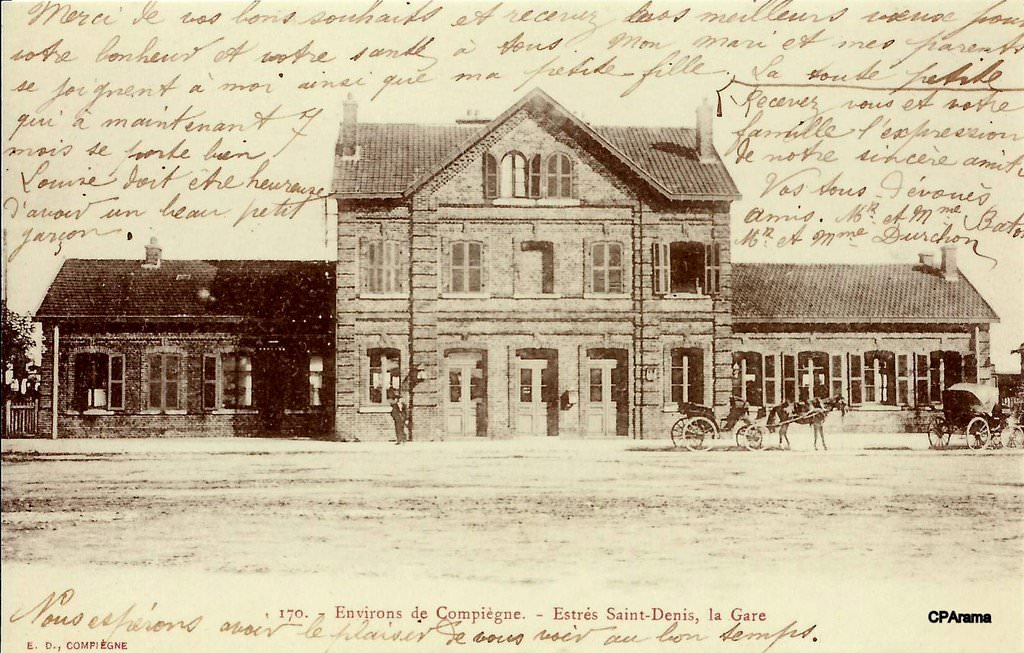 Merci de vos bons souhaits et recevez tous nos meilleurs vœux pour
votre bonheur et votre santé à tous. Mon mari et mes parents
se joignent à moi ainsi que ma petite-fille. La toute petite
qui à maintenant 7
mois se porte bien
Louise doit être heureuse
d'avoir un beau petit
garçon
Recevez vous et votre
famille l'expression
de notre sincère amitié
Vos tous dévoués
amis. Mr et Mme
Mr et Mme Durchon
170. - Environs de Compiègne. - Estrés Saint-Denis, la Gare
Nous espérons avoir le plaisir de vous voir au bon temps.
E. D., COMPIÈGNE
CPArama